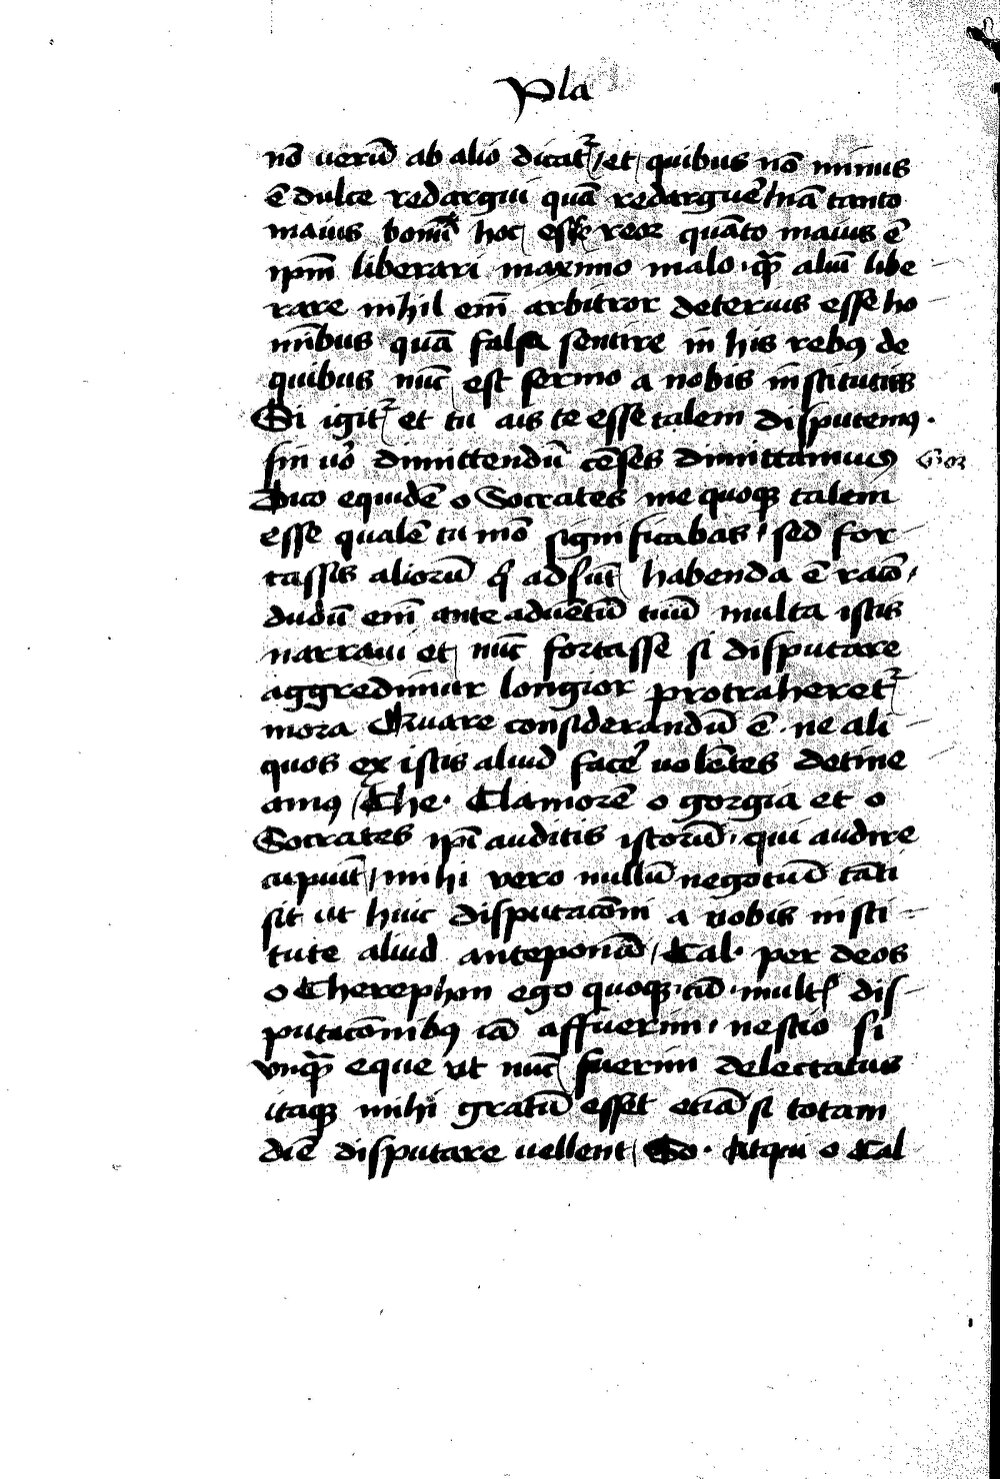 Pla
nō uerū ab alio dicat᷑ / et quibus nō minus
ē dulce redargui quā redarguē͛ / nā tanto
maius bonū hoc esse reor quāto maius ē
ip̄m liberari maximo malo · qᷓ aliū libe
rare nihil em̄ arbitror deterius esse ho
mībus quā falsa sentire in his rebꝯ de
quibus nūc est sermo a nobis institutus
Si igit᷑ et tu ais te esse talem disputemꝯ ·
sin uō dimittendū cēses dimittamus
Gor
Dico equidē o Socrates me quoqꝫ talem
esse qualē tu mō significabas / sed for
tassis aliorū q̄ adsūt habenda ē racō /
dudū em̄ ante aduētū tuū multa istis
narraui et nūc fortasse si disputare
aggredimur longior protraheret᷑
mora Quare considerandū ē · ne ali
quos ex istis aliud facē͛ uolētes detine
amꝯ / Che · Clamorē o gorgia et o
Socrates ip̄i auditis istorū · qui audire
cupiūt / mihi vero nullū negotiū tāti
sit ut huic disputacōni a uobis insti
tute aliud anteponā / Cal · per deos
o Cherephon ego quoqꝫ cū · mult᷒ dis
putacōnibꝯ iā affuerim / nescio si
vnqᷓ eque ut nūc fuerim delectatus
itaqꝫ mihi gratū esset etiā si totam
diē disputare uellent / So · Atqui o Cal